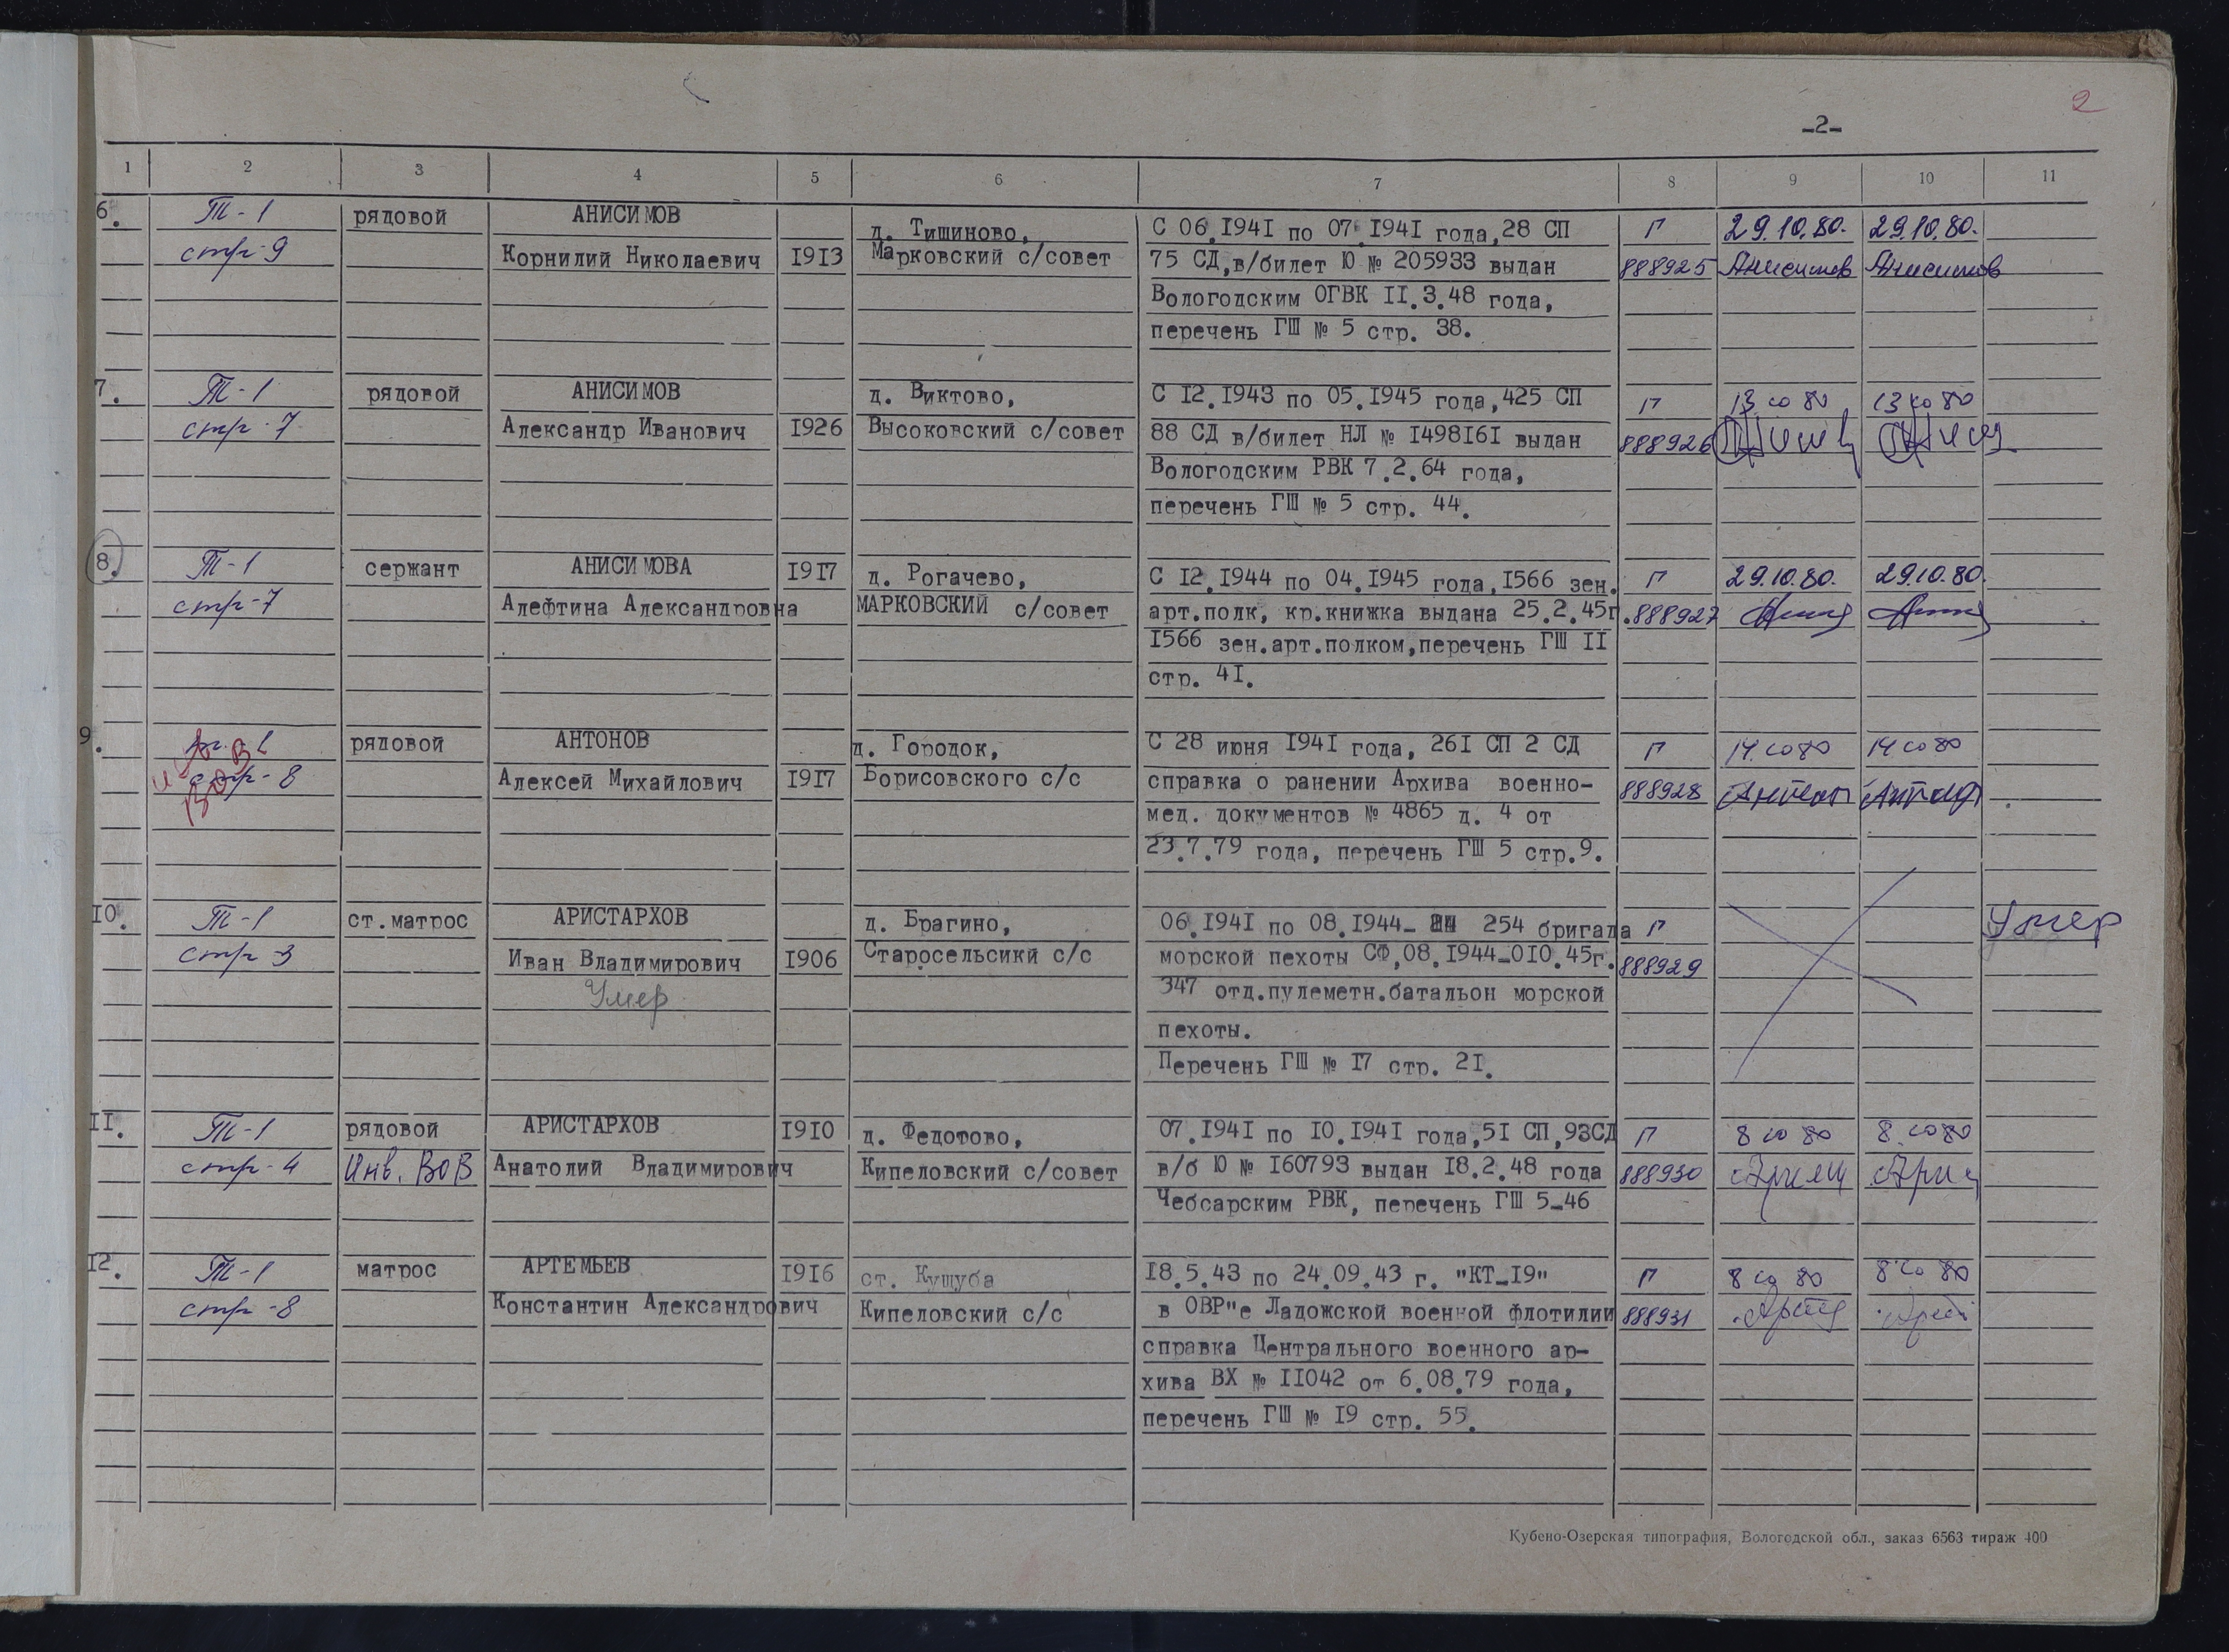 2
-2-
1 2 3 4 5 6 7 8 9 10 11
6. Т-1 рядовой АНИСИМОВ д. Тишиново, С 06.1941 по 07.1941 года,28 СП П 29.10.80. 29.10.80.
стр-9 Корнилий Николаевич 1913 Марковский с/совет 75 СД,в/билет Ю № 205933 выдан 888925 Анисимов Анисимов
Вологодским ОГВК II.3.48 года,
перечень ГШ № 5 стр. 38.
7. Т-1 рядовой АНИСИМОВ д. Виктово, С I2.I943 по 05.I945 года,425 СП П 13 10 80 13 10 80
стр-7 Александр Иванович I926 Высоковский с/совет 88 СД в/билет НЛ № I498I6I выдан 888926
Вологодским РВК 7.2.64 года,
перечень ГШ № 5 стр. 44.
8. Т-1 сержант АНИСИМОВА I9I7 д. Рогачево, С I2.I944 по 04.I945 года,I566 зен. П 29.10.80. 29.10.80.
стр-7 Алефтина Александровна МАРКОВСКИЙ с/совет арт.полк, кр.книжка выдана 25.2.45г. 888927
I566 зен.арт.полком,перечень ГШ II
стр. 4I.
9. Т-1 рядовой АНТОНОВ д. Городок, С 28 июня I94I года, 26I СП 2 СД П 14 10 80 14 10 80
стр-8 Алексей Михайлович I9I7 Борисовского с/с справка о ранении Архива военно- 888928
ВОВ
мед. документов № 4865 д. 4 от
23.7.79 года, перечень ГШ 5 стр.9.
I0. Т-1 ст.матрос АРИСТАРХОВ д. Брагино, 06.I94I по 08.I944- 254 бригада П Умер
стр-3 Иван Владимирович I906 Старосельсикй с/с морской пехоты СФ,08.I944-0I0.45г. 888929
Умер 347 отд.пулеметн.батальон морской
пехоты.
Перечень ГШ № I7 стр. 2I.
II. Т-1 рядовой АРИСТАРХОВ I9I0 д. Федотово, 07.I94I по I0.I94I года,5I СП,93СД П 8 10 80 8 10 80
стр-4 Инв. ВОВ Анатолий Владимирович Кипеловский с/совет в/б Ю № I60793 выдан I8.2.48 года 888930
Чебсарским РВК, перечень ГШ 5-46
I2. Т-1 матрос АРТЕМЬЕВ I9I6 ст. Кущуба I8.5.43 по 24.09.43 г. "КТ-I9" П 8 10 80 8 10 80
стр-8 Константин Александрович Кипеловский с/с в ОВР"е Ладожской военной флотилии 888931
справка Центрального военного ар-
хива ВХ № II042 от 6.08.79 года,
перечень ГШ № I9 стр. 55.
Кубено-Озерская типография, Вологодской обл., заказ 6563 тираж 400